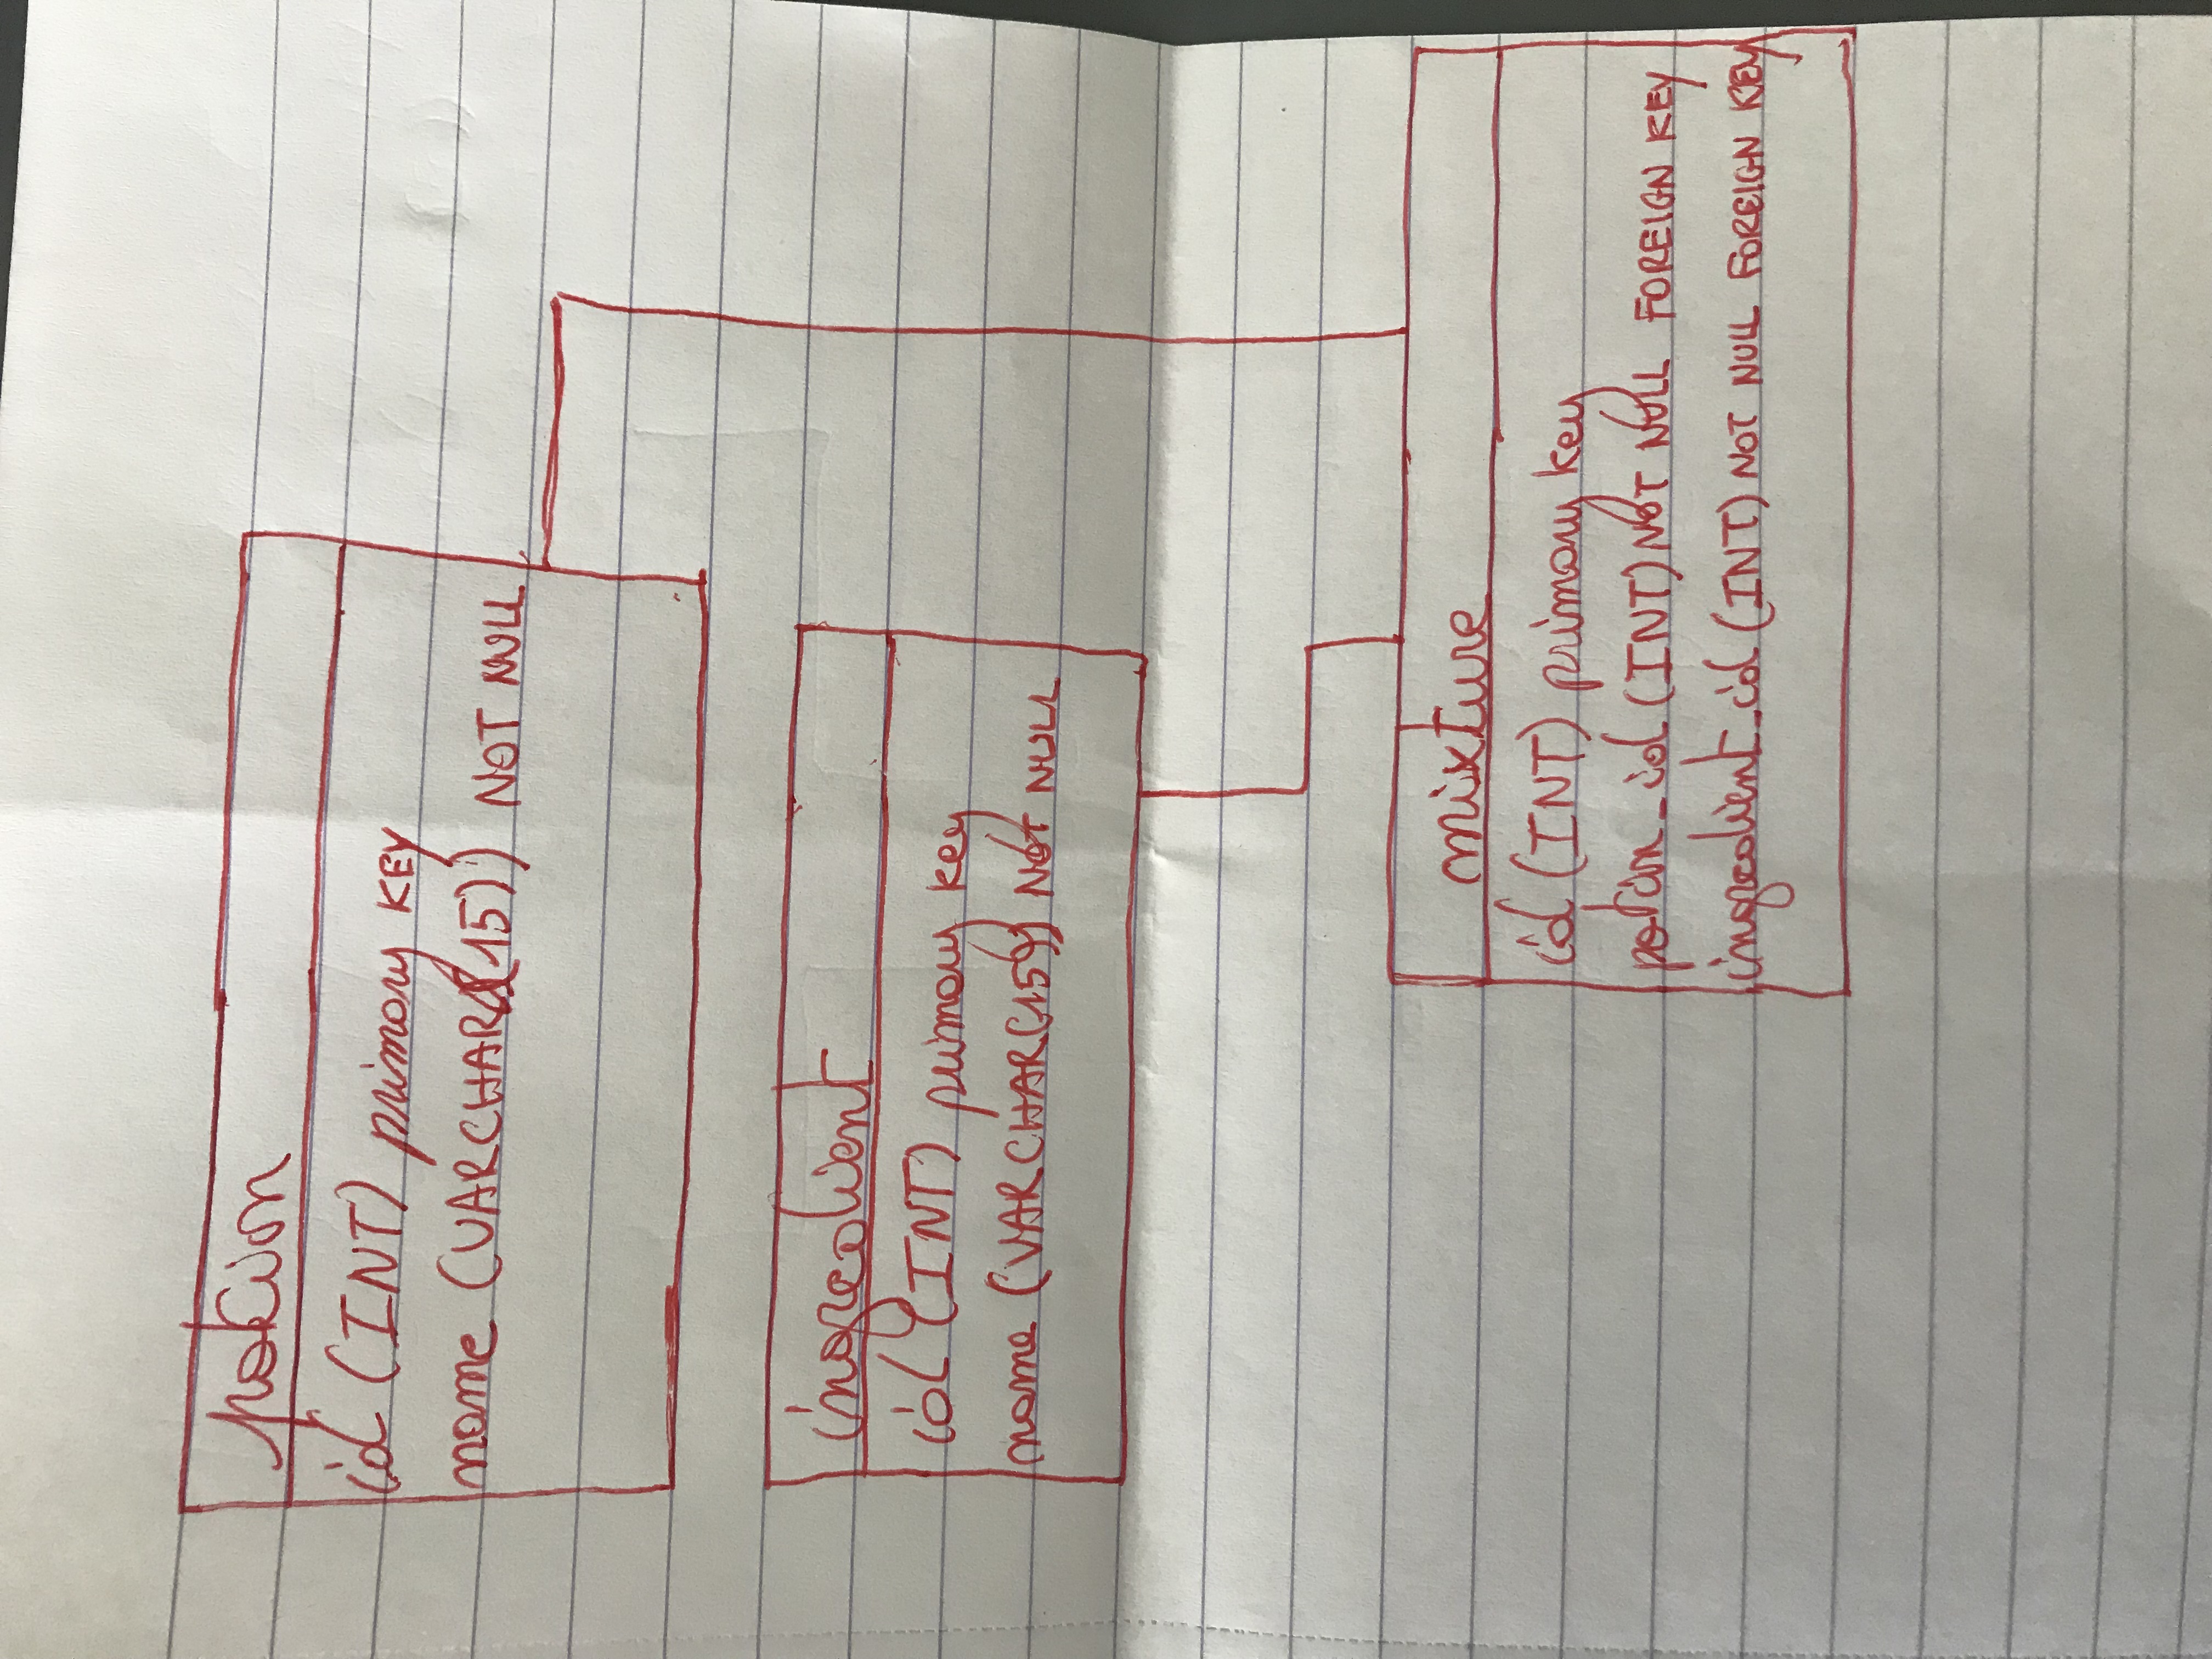 potion
id (INT) primary KEY
name (VARCHAR(15)) NOT NULL
ingredient
id (INT) primary key
name (VARCHAR(15)) NOT NULL
mixture
id (INT) primary key
potion_id (INT) NOT NULL FOREIGN KEY
ingredient_id (INT) NOT NULL FOREIGN KEY